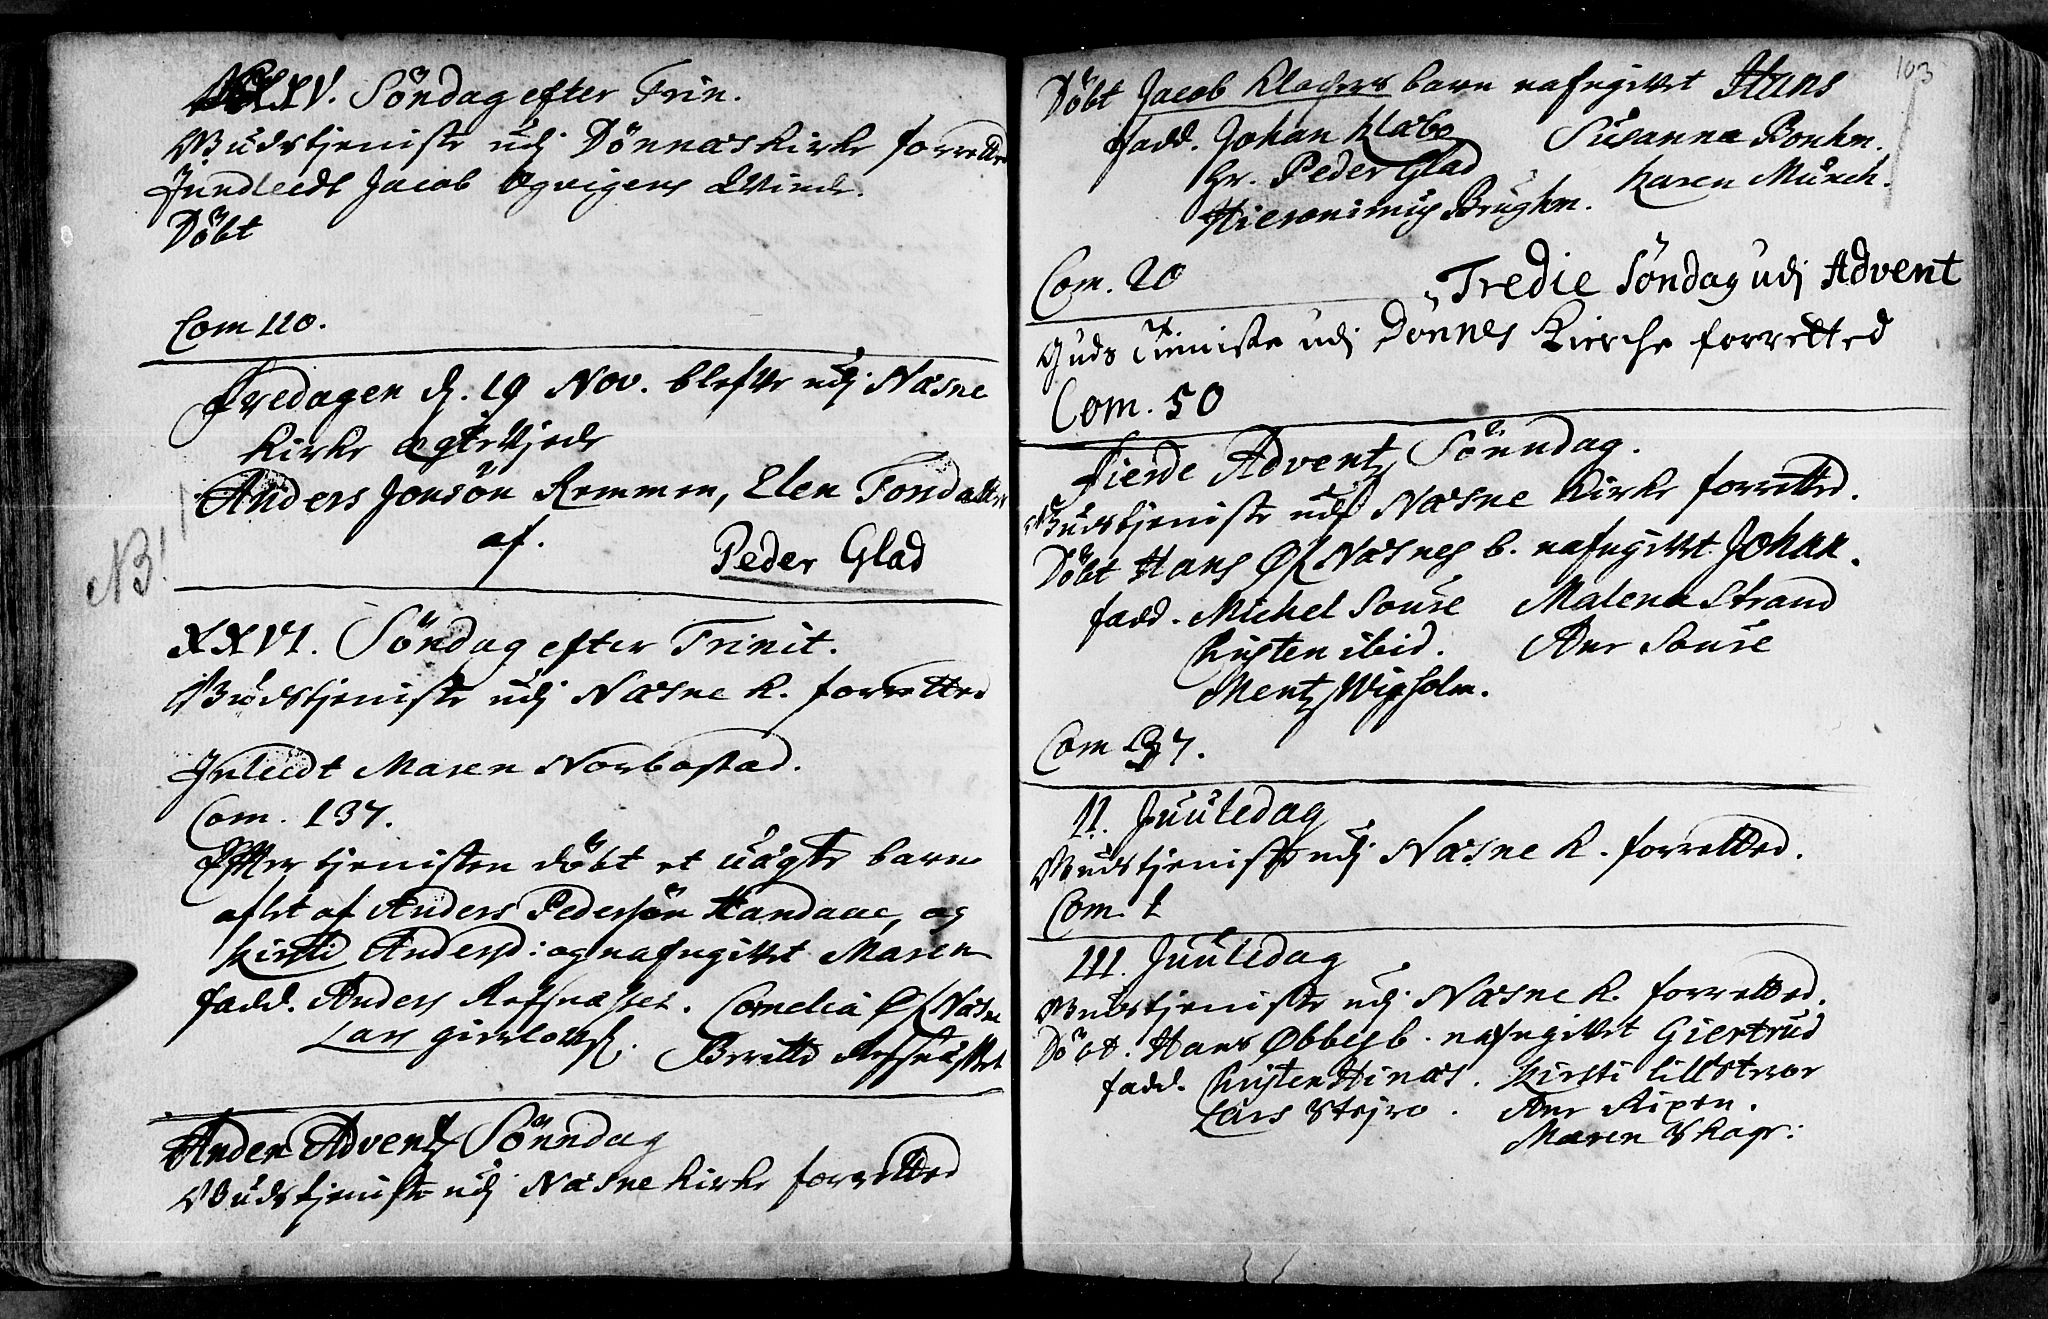 XXV. Söndag efter Trin.
Gudstjeniste udj Dönnæs Kirke forretted
Jndleedt Jacob Ogvigens Qvinde.
Döbt
Com 110.
Fredagen d. 19 Nov. blefve udj Næsne
Kirke ægteviede
Anders Jonsøn Remmen, Elen Tondatter
af.
Peder Glad
NB!
XXVI. Söndag efter Trinit.
Gudstjeniste udj Næsne K. forretted
Jnleedt Maren Norbostad.
Com. 137.
Efter tjenisten döbt et uægte barn
aflet af Anders Pedersøn Handaae, og
Kirsti Andersd: og nafngivet Maren
fadd. Anders Refsnæsset. Cornelia Øf. Næsne
Lars
Berette Refsnæsset
Anden Advents Sönndag
Gudstjeniste udj Næsne Kirke forretted
103
Döbt Jacob barn nafngivet Hans
fadd. Johan Klæbo Susanna Bonhm.
Hr. Peder Glad Karen Munch.
Hieronimus Brughm.
Com. 20
Tredie Söndag udj Advent
Guds Tieniste udj Dönnes Kierche forretted
Com. 50
Fierde Advents Sönndag.
Gudstjeniste udj Næsne Kirke forretted.
Döbt Hans Øf Næsnes b. nafngivet Johan.
fadd. Michel Souse Malena Strand
Christen ibid. Ane Souse
Mentz Wigholm.
Com 37.
II. Juuledag
Gudstjeniste udj Næsne K. forretted.
Com. 1
III. Juuledag
Gudstjeniste udj Næsne K. forretted.
Döbt. Hans Øbbes b. nafngivet Giertrud
fadd. Christen Hinæs. Kirsti
Lars Ane Ripen.
Maren Skage: